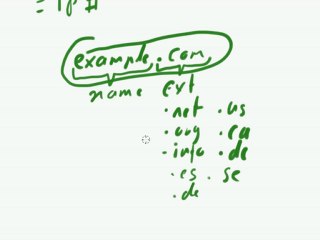 = IP #
example.com
name ext
.net .us
.org .ca
.info .de
.es .se
.de